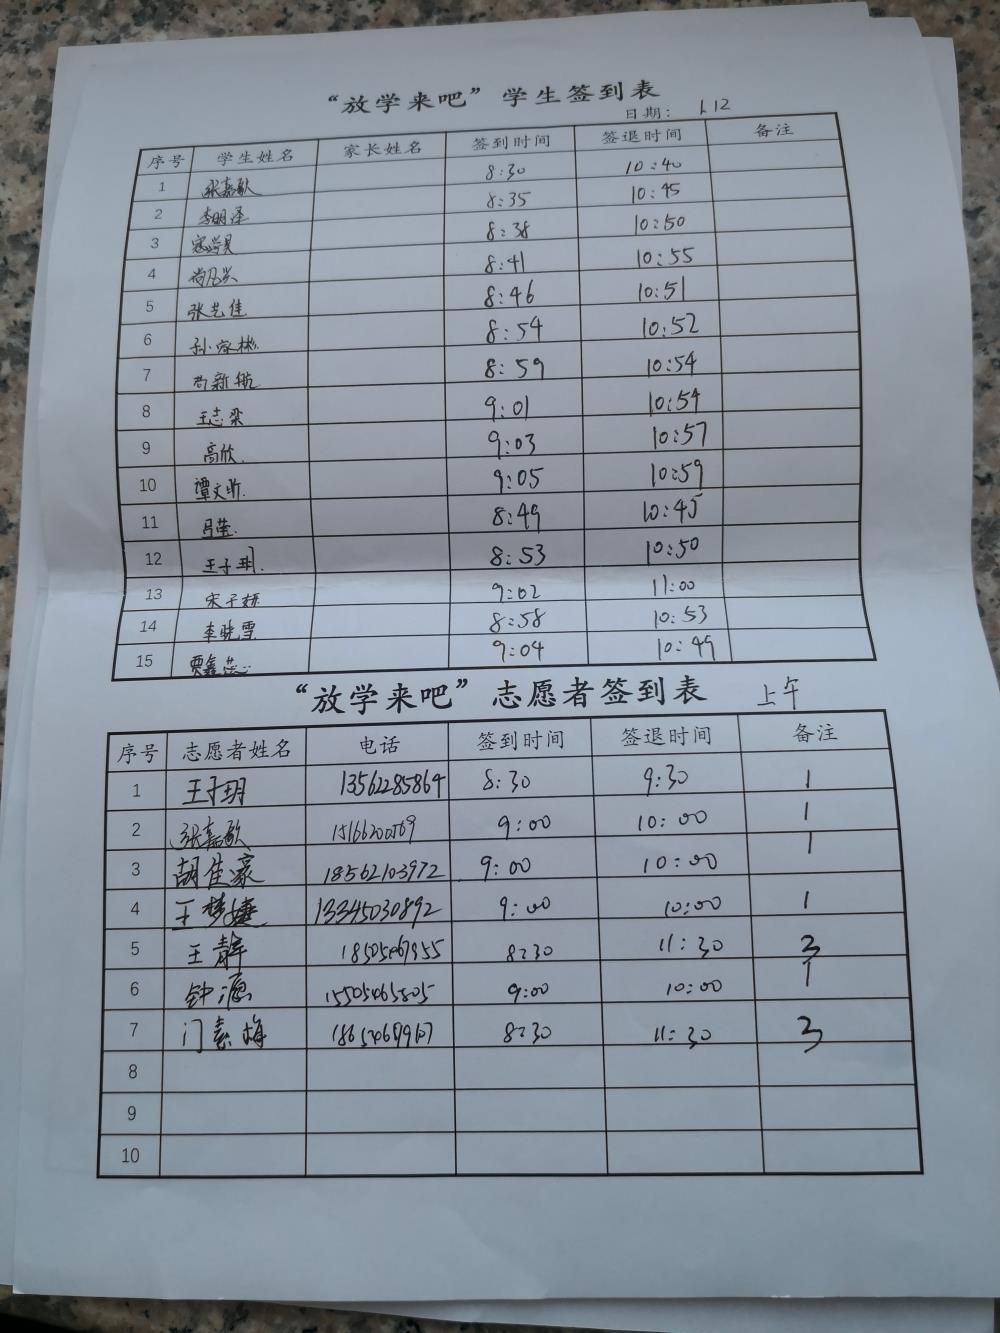 “放学来吧”学生签到表
日期： 1.12
序号 学生姓名 家长姓名 签到时间 签退时间 备注
1 张嘉敏 8:30 10:40
2 李明泽 8:35 10:45
3 8:38 10:50
4 8:41 10:55
5 张艺佳 8:46 10:51
6 8:54 10:52
7 8:59 10:54
8 王志梁 9:01 10:54
9 高欣 9:03 10:57
10 谭文昕 9:05 10:59
11 马莹 8:49 10:45
12 王子玥 8:53 10:50
13 9:02 11:00
14 李晓雪 8:58 10:53
15 9:04 10:49
“放学来吧”志愿者签到表 上午
序号 志愿者姓名 电话 签到时间 签退时间 备注
1 王子玥 13562285864 8:30 9:30 1
2 张嘉敏 9:00 10:00 1
3 胡佳豪 18562103972 9:00 10:00 1
4 王梦婕 13345030892 9:00 10:00 1
5 王静 8:30 11:30 3
6 钟源 9:00 10:00 1
7 门素梅 8:30 11:30 3
8
9
10